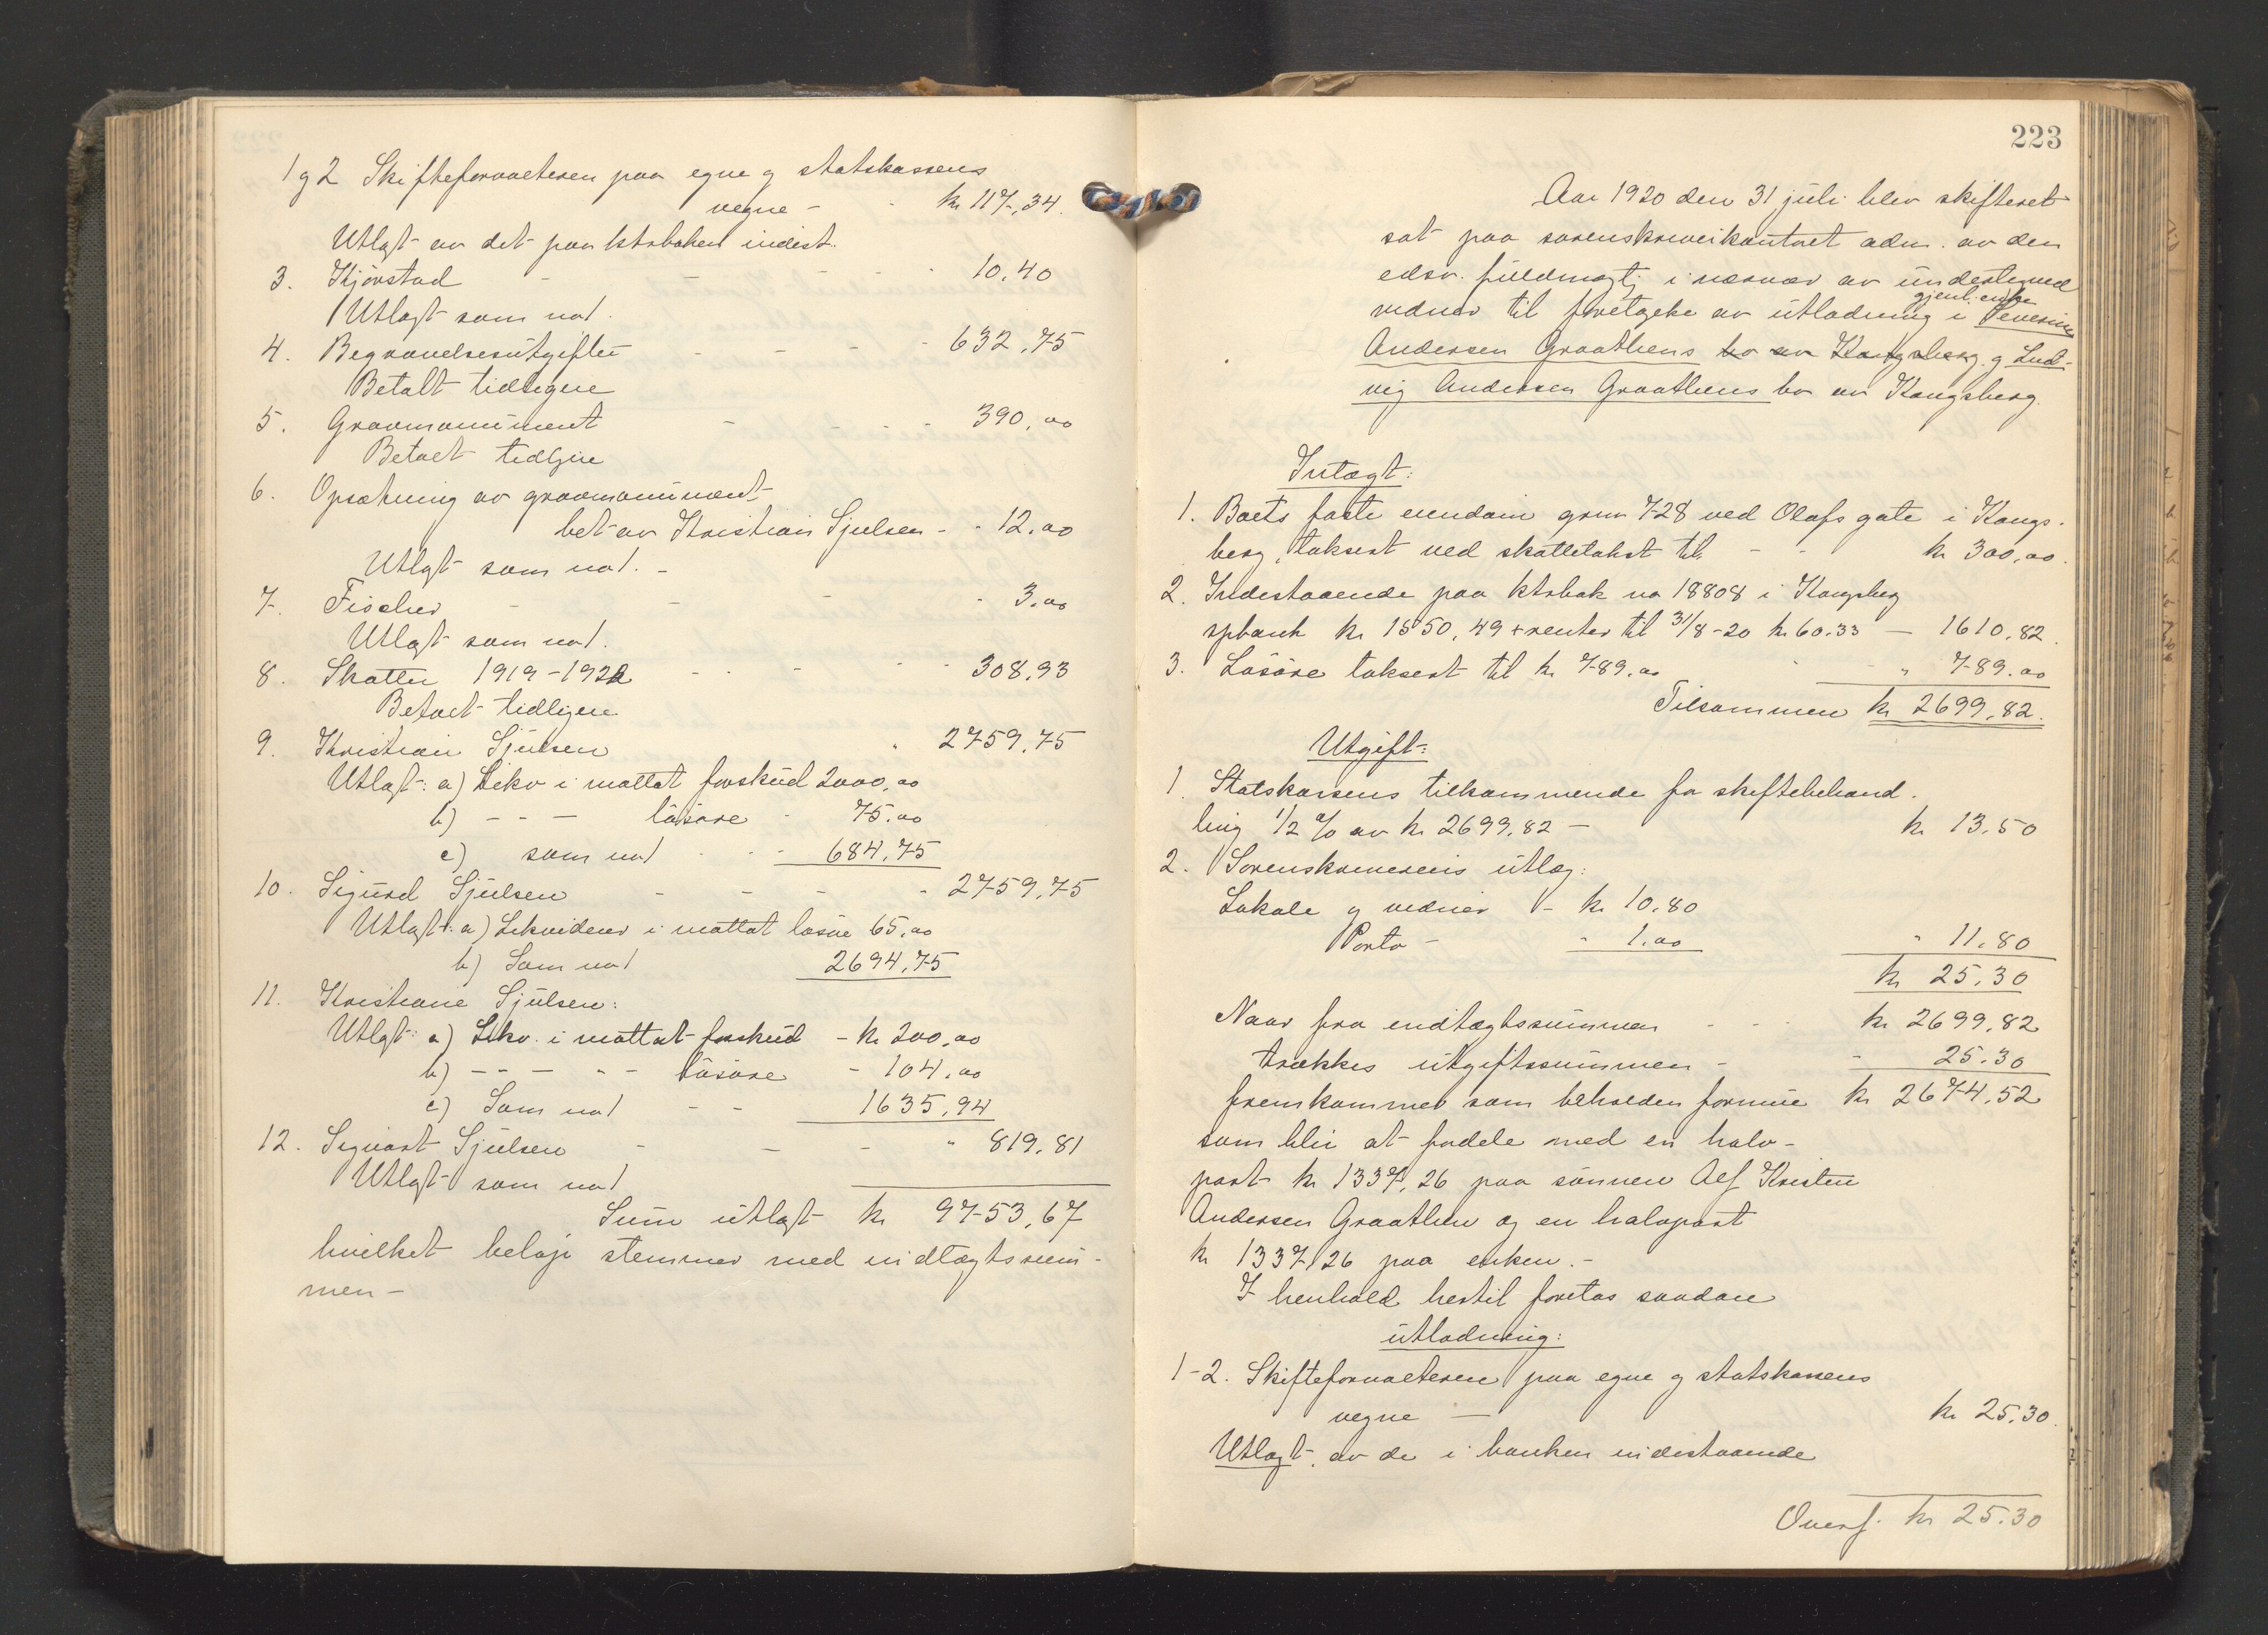 1 g 2 Skifteforvalteren paa egne g statskassens
vegne - - kr 117,34.
Utlagt av det paa ktrboken indest.
3. Kjörstad - - - - 10,40
Utlagt som no 1.
4. Begravelsesutgifter - - - - 632,75
Betalt tidligere
5. Gravmonument - - - - 390,00
Betalt tidligere
6. Opsætning av gravmonument
bet av Kristian Sjulsen - - 12,00
Utlagt som no 1. -
7. Fischer - - - - 3,00
Utlagt som no 1.
8. Skatter 1919-1920 - - - - 308,93
Betalt tidligere
9. Kristian Sjulsen " 2759,75
Utlagt: a) Likv i mottat forskud 2000,00
b) - - - lösöre - 75,00
c) som no 1 - - - 684,75
10. Sigurd Sjulsen - - - - 2759,75
Utlagt: a) Likviderer i mottat lösöre 65,00
b) Som no 1 2694,75
11. Kristiane Sjulsen:
Utlagt: a) Likv. i mottat forskud - kr 200,00
b) - - - - - lösöre - 104,00
c) Som no 1 - - 1635,94
12. Sigvart Sjulsen - - - " 819,81
Utlagt som no 1
Sum utlagt kr 9753,67
hvilket belöp stemmer med indtægtssum-
men -
223
Aar 1920 den 31 juli blev skifteret
sat paa sorenskriverkontoret adm. av den
edsv. fuldmægtig i nærvær av undertegned
vidner til foretagelse av utlodning i gjenl. enke Severine
Andersen Graathens bo av Kongsberg g Lud-
vig Andersen Graathens bo av Kongsberg.
Intægt:
1. Boets faste eiendom grnr 728 ved Olafs gate i Kongs-
berg, taksert ved skattetakst til - - kr 300,00.
2. Indestaaende paa ktrbok no 18808 i Kongsberg
spbank kr 1550,49 + renter til 31/8-20 kr 60.33 - 1610,82.
3. Lösöre taksert til kr 789.00 " 789.00
Tilsammen kr 2699,82.
Utgift:
1. Statskassens tilkommende for skiftebehand-
ling 1/2 % av kr 2699,82 - kr 13,50
2. Sorenskriverens utlæg:
Lokale g vidner - kr 10,80
Porto - " 1,00 " 11,80
kr 25,30
Naar fra indtægtssummen - - - kr 2699,82
trækkes utgiftssummen - - 25.30
fremkommer som beholden formue kr 2674,52
som blir at fordele med en halv-
part kr 1337,26 paa sönnen Alf Kristen
Andersen Graathen og en halvpart
kr 1337,26 paa enken. -
I henhold hertil foretas saadan
utlodning:
1-2. Skifteforvalteren paa egne g statskassens
vegne - kr 25,30.
Utlagt. av de i banken indestaaende
Overf. kr 25.30